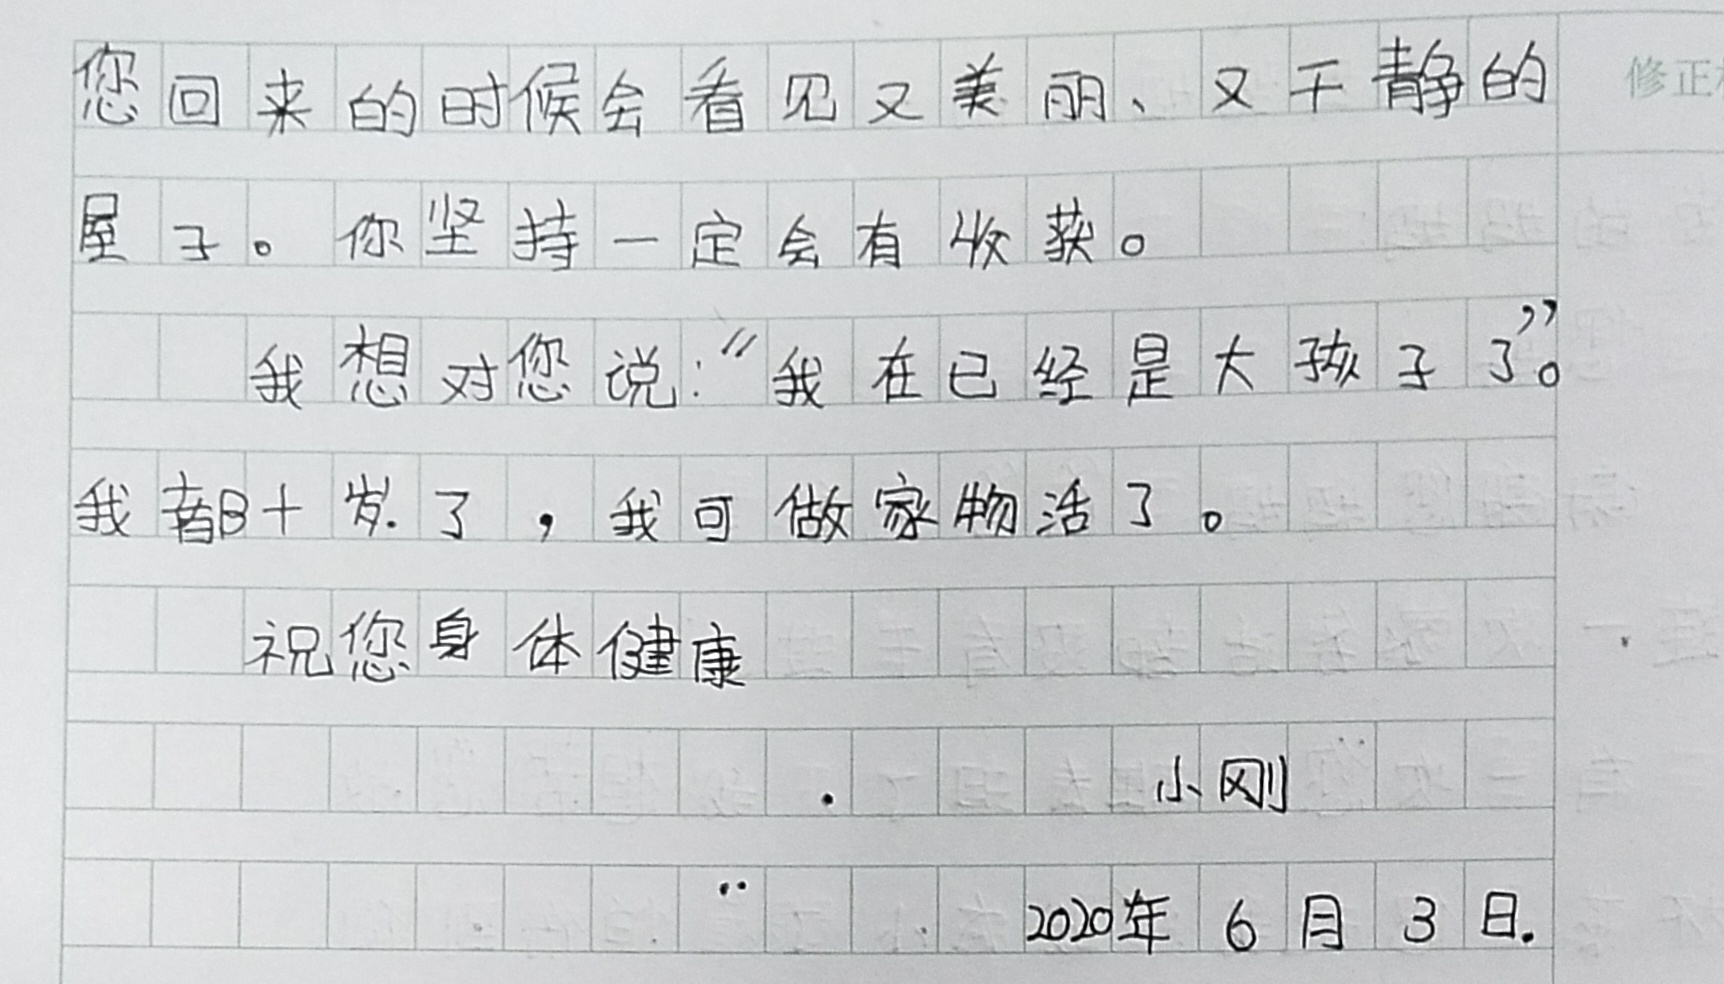 您回来的时候会看见又美丽、又干静的
修正
屋子。你坚持一定会有收获。
我想对您说:“我在已经是大孩子了”。
我都十岁了,我可做家物活了。
祝您身体健康
小刚
2020年6月3日.